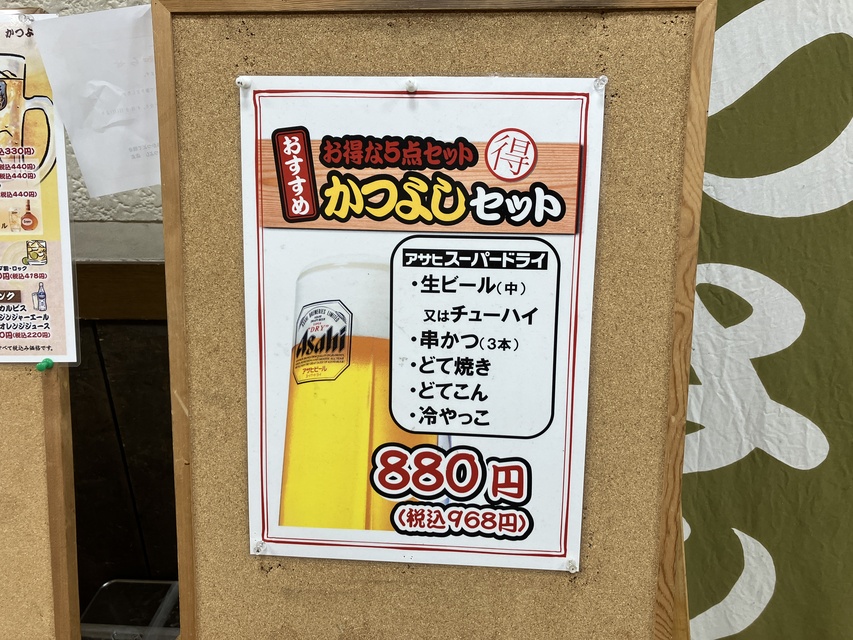 かつよ
税込330円)
(税込440円)
(税込440円)
税込440円)
・ロック
円(税込418円)
カルピス
ジンジャーエール
オレンジジュース
0円(税込220円)
すべて税込み価格です。
おすすめ
お得な5点セット
得
かつよしセット
アサヒスーパードライ
・生ビール(中)
又はチューハイ
・串かつ(3本)
・どて焼き
・どてこん
・冷やっこ
"DRY"
Asahi
アサヒビール
880円
(税込968円)